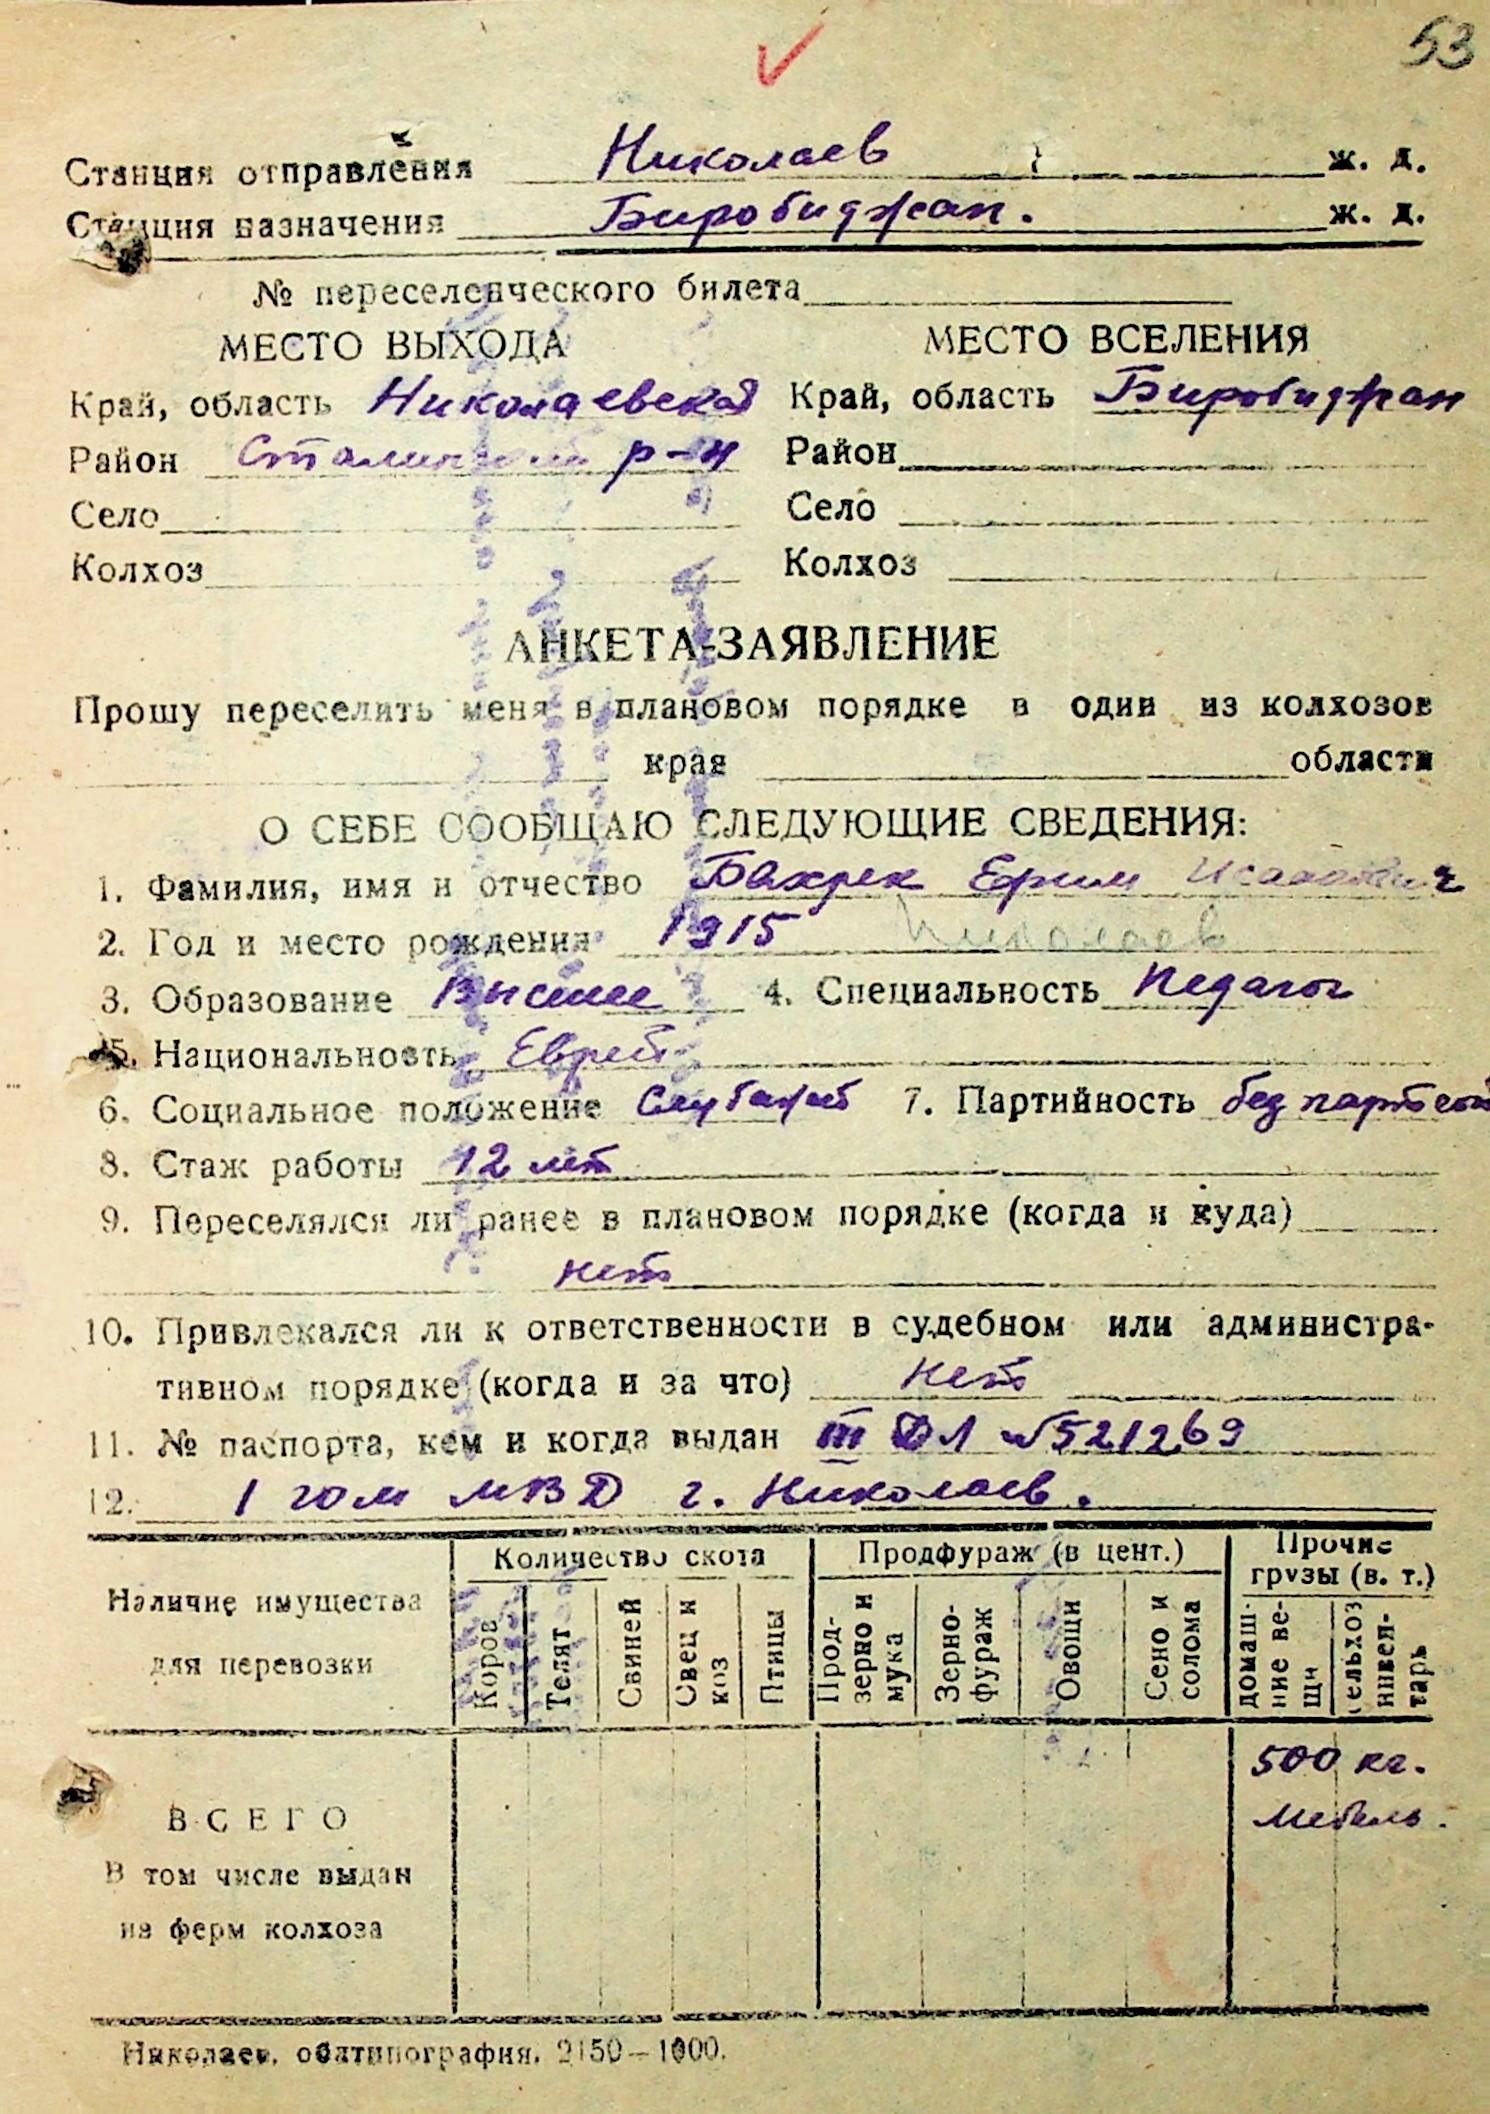 53
Станция отправления Николаев ж. д.
Станция назначения Биробиджан. ж. д.
№ переселенческого билета
МЕСТО ВЫХОДА МЕСТО ВСЕЛЕНИЯ
Край, область Николаевской Край, область Биробиджан
Район Сталинский р-н Район
Село Село
Колхоз Колхоз
АНКЕТА-ЗАЯВЛЕНИЕ
Прошу переселить меня в плановом порядке в один из колхозов
края области
О СЕБЕ СООБЩАЮ СЛЕДУЮЩИЕ СВЕДЕНИЯ:
1. Фамилия, имя и отчество Бахрек Ефим Исаакович
2. Год и место рождения 1915 Николаев
3. Образование Высшее 4. Специальность Педагог
5. Национальность Еврей
6. Социальное положение Служащий 7. Партийность без партейный
8. Стаж работы 12 лет
9. Переселялся ли ранее в плановом порядке (когда и куда)
нет
10. Привлекался ли к ответственности в судебном или администра-
тивном порядке (когда и за что) нет
11. № паспорта, кем и когда выдан III ДЛ №521269
12. 1 гом МВД г. Николаев.
Наличие имущества для перевозки
Количество скота
Продфураж (в цент.)
Прочие грузы (в. т.)
Коров
Телят
Свиней
Овец и коз
Птицы
Прод-зерно и мука
Зерно-фураж
Овощи
Сено и солома
домаш-ние ве-щи
сельхоз инвен-тарь
500 кг.
мебель.
ВСЕГО
В том числе выдан
из ферм колхоза
Николаев, облтипография. 2150—1000.